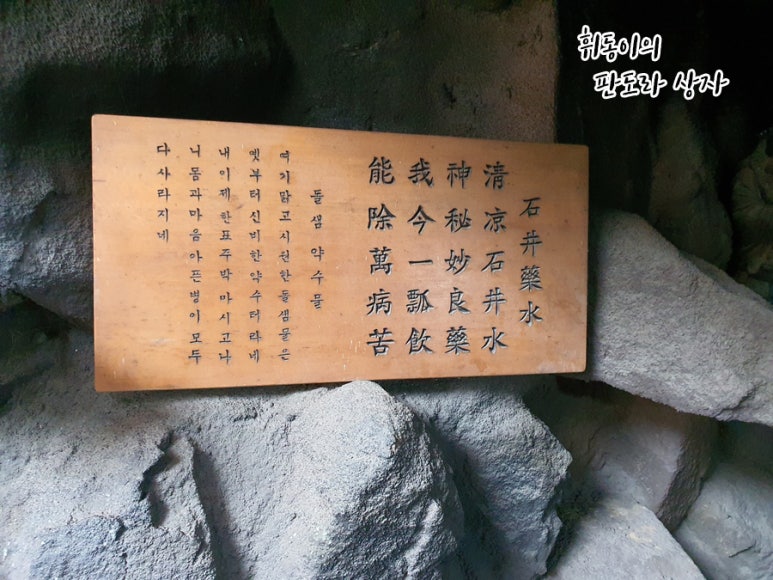 휘동이의
판도라 상자
石井藥水
淸凉石井水
神秘妙良藥
我今一瓢飮
能除萬病苦
돌샘 약수물
여기맑고시원한돌샘물은
옛부터신비한약수터라네
내이제한표주박마시고나
니몸과마음아픈병이모두
다사라지네